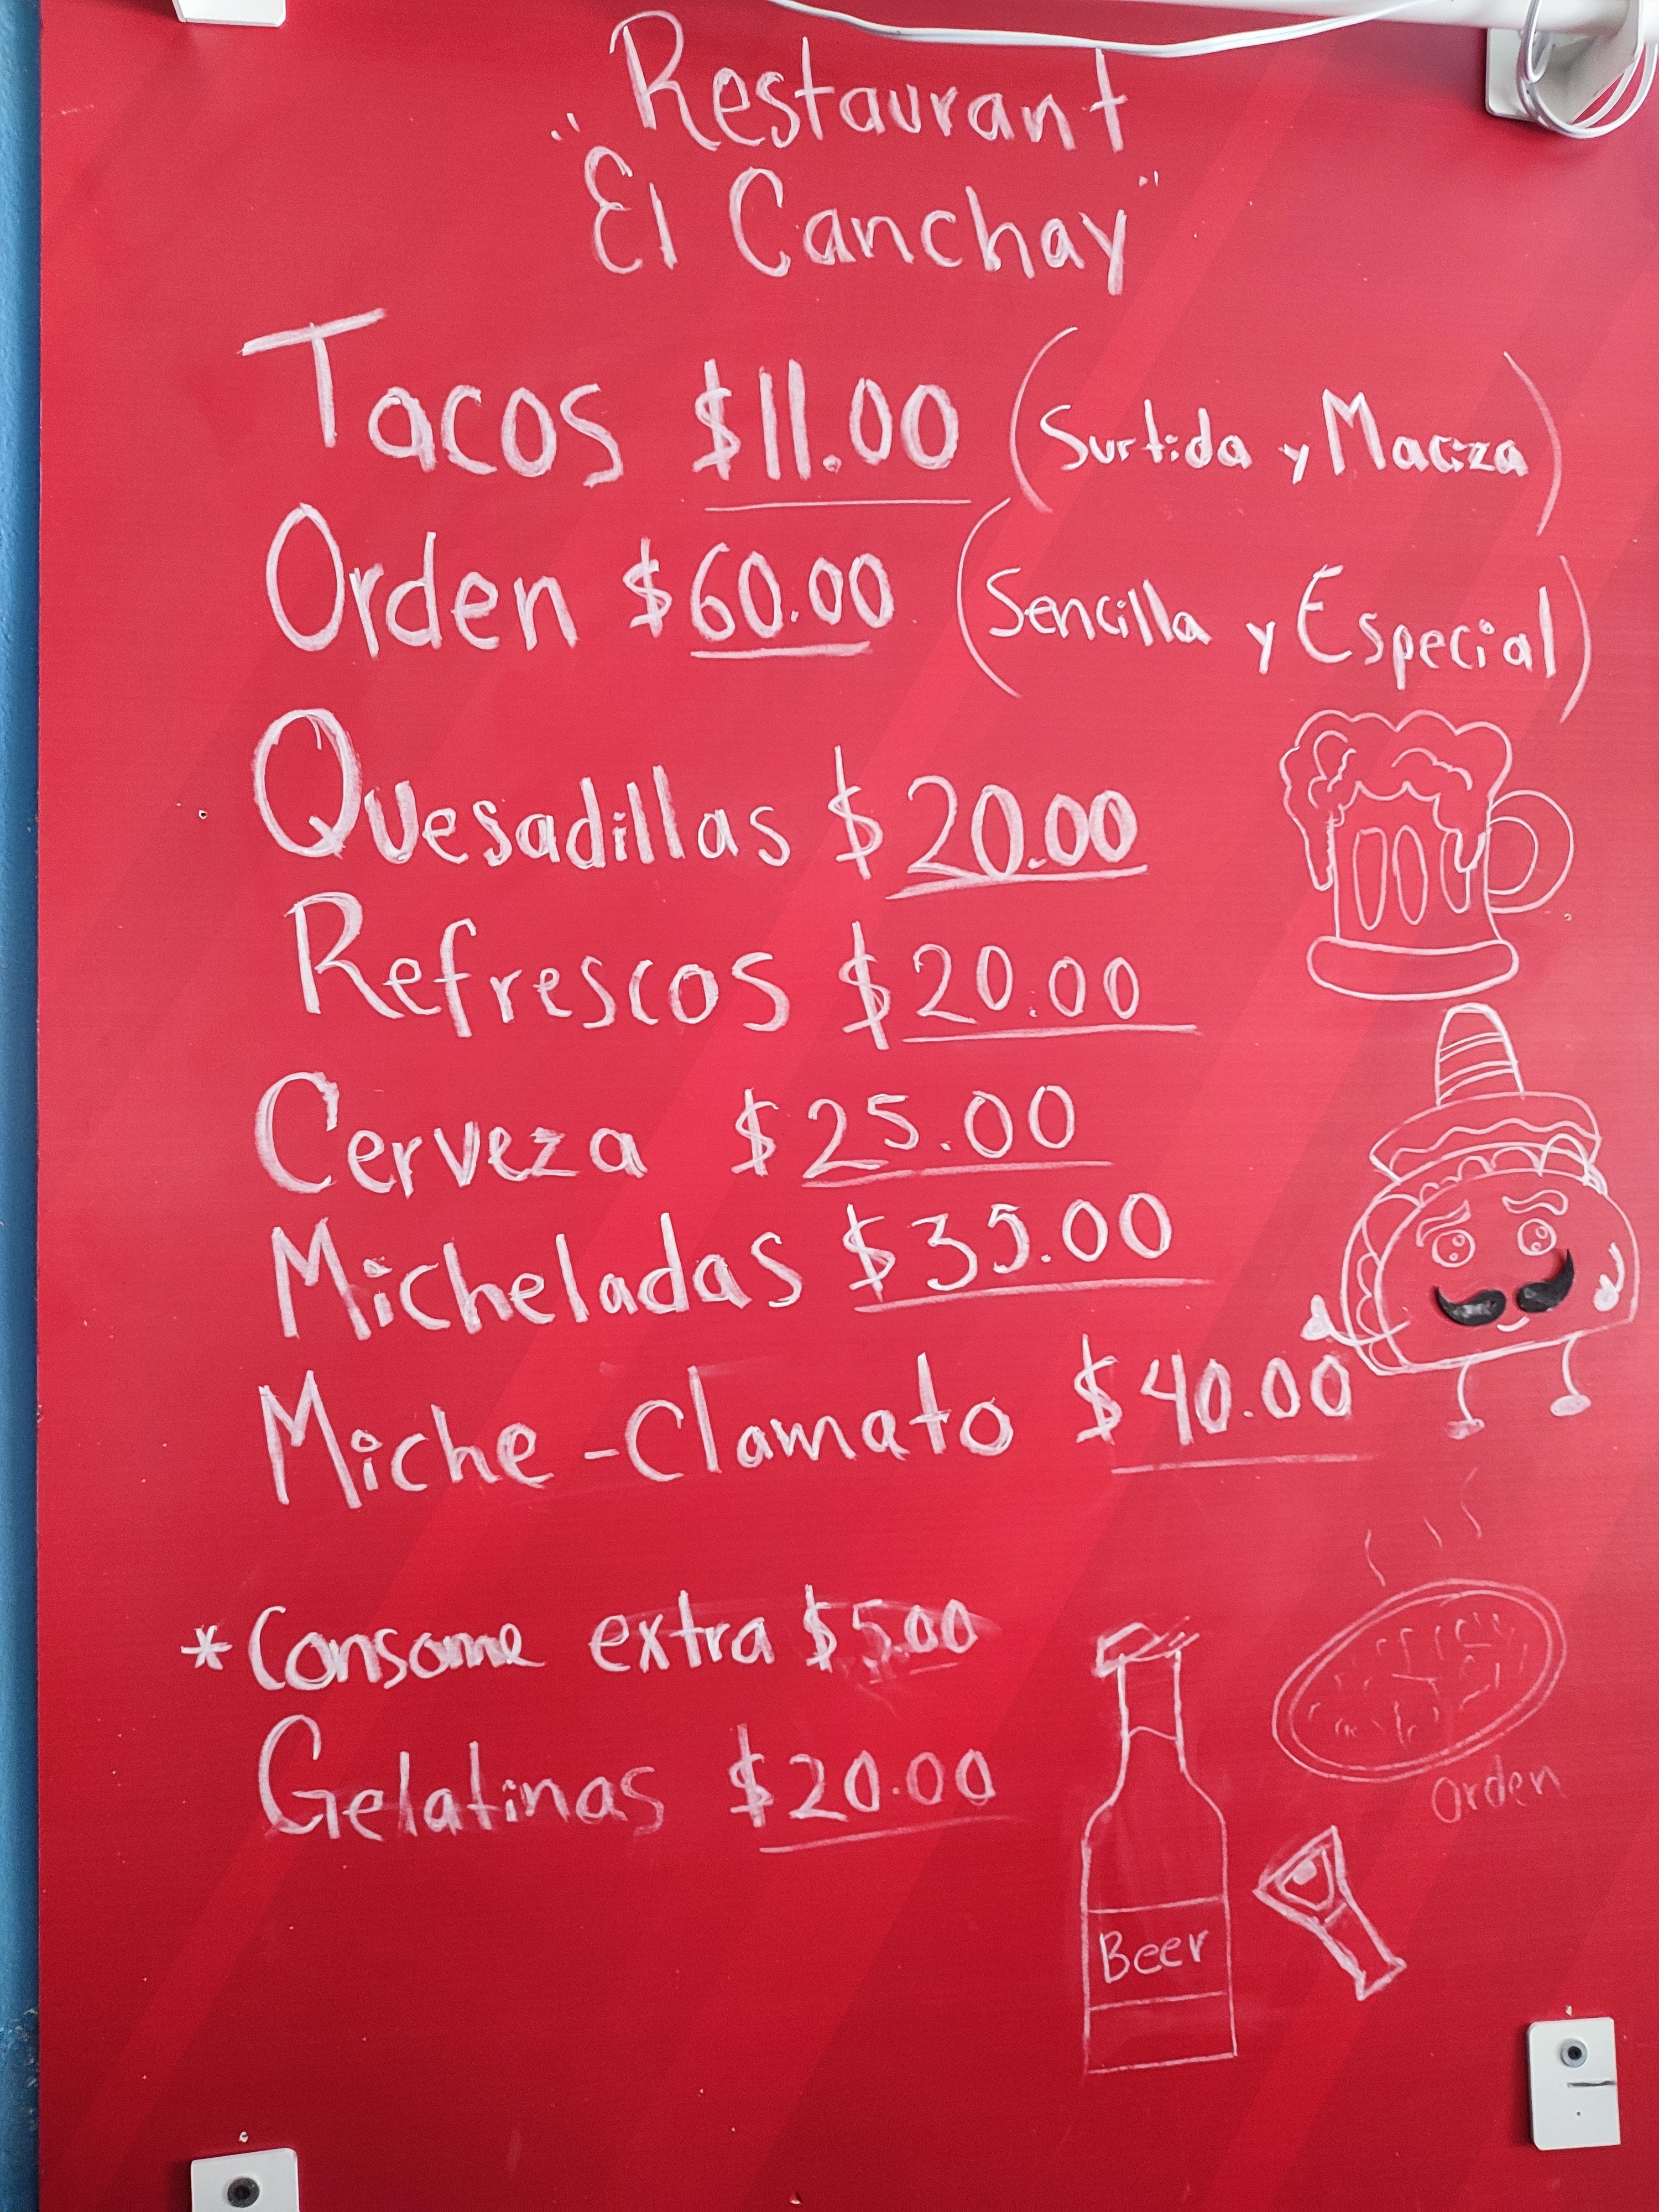 Restaurant
"El Canchay"
Tacos $11.00 (Surtida y Maciza)
Orden $60.00 (Sencilla y Especial)
Quesadillas $20.00
Refrescos $20.00
Cerveza $25.00
Micheladas $35.00
Miche-Clamato $40.00
*Consome extra $5.00
Gelatinas $20.00
Orden
Beer